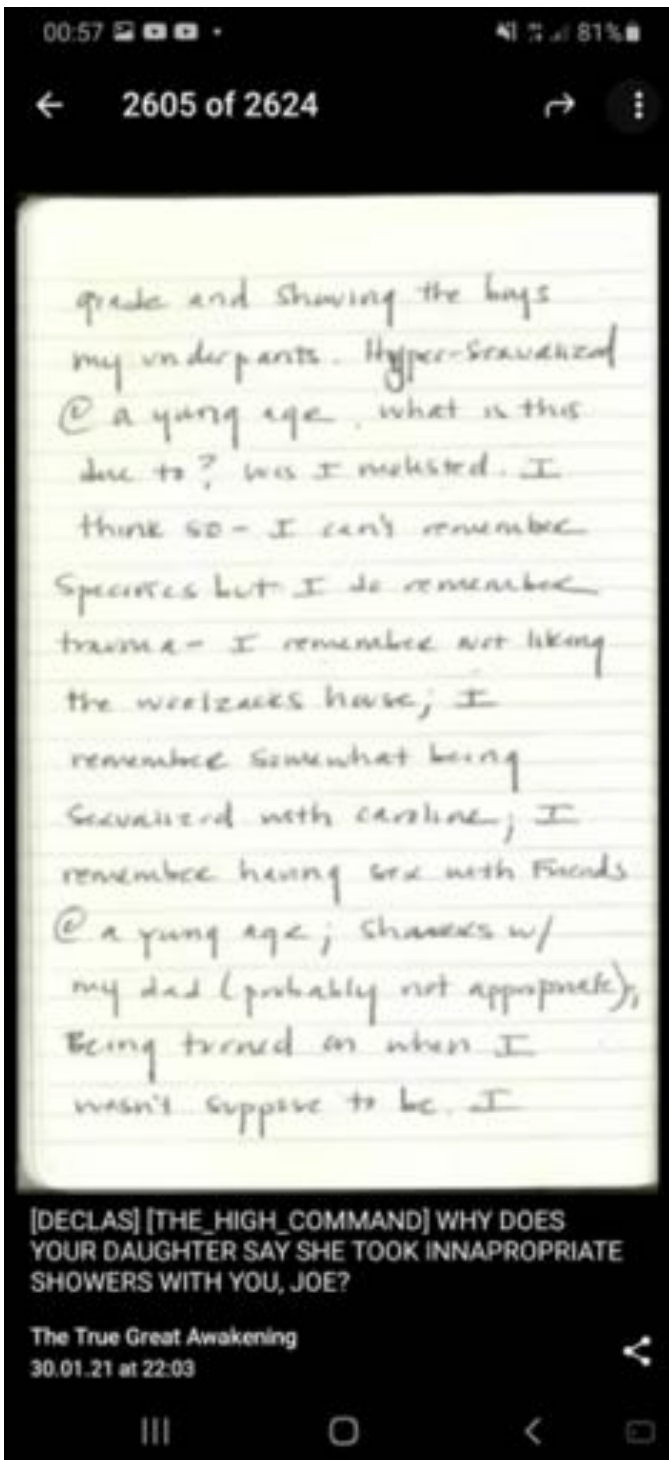 00:57
81%
2605 of 2624
grade and showing the boys
my underpants. Hyper-Sexualized
@ a yung age. what is this
due to? was I molested. I
think so - I can't remember
Specifics but I do remember
trauma - I remember not liking
the woolzacks house; I
remember somewhat being
Sexualized with caroline; I
remember having sex with Friends
@ a yung age; showers w/
my dad (probably not appropriate);
Being turned on when I
wasn't suppose to be. I
[DECLAS] [THE_HIGH_COMMAND] WHY DOES
YOUR DAUGHTER SAY SHE TOOK INNAPROPRIATE
SHOWERS WITH YOU, JOE?
The True Great Awakening
30.01.21 at 22:03